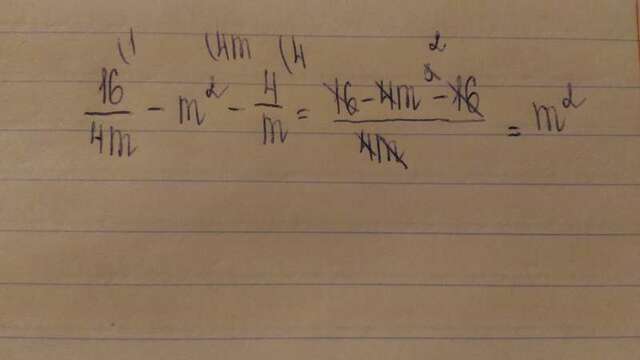 (1 (4m (4
16/4m - m² - 4/m = (16 - 4m² - 16)/4m = m²
2